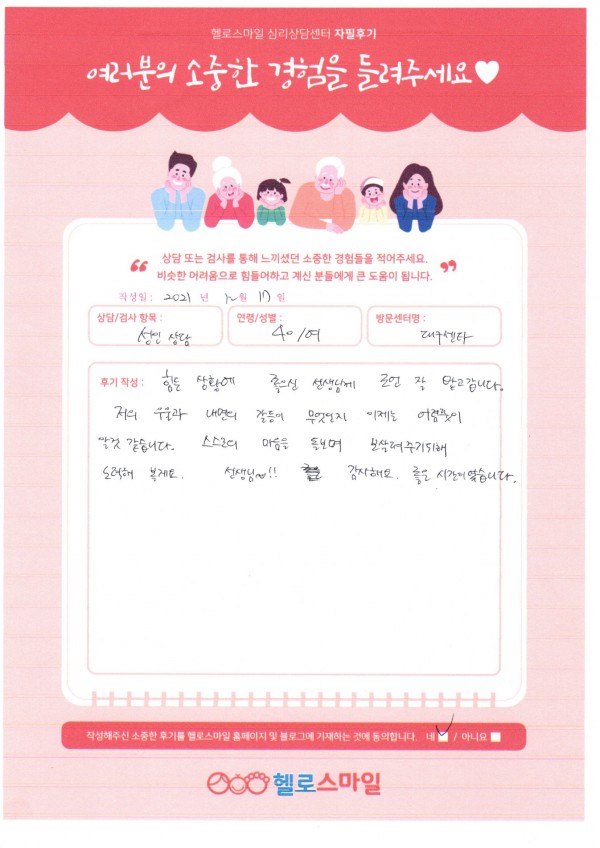 헬로스마일 심리상담센터 자필후기
여러분의 소중한 경험을 들려주세요♥
상담 또는 검사를 통해 느끼셨던 소중한 경험들을 적어주세요.
비슷한 어려움으로 힘들어하고 계신 분들에게 큰 도움이 됩니다.
작성일 : 2021 년 12월 17일
상담/검사 항목 : 성인 상담
연령/성별 : 40/여
방문센터명 : 대구센타
후기 작성 : 힘든 상황에 좋으신 선생님께 조언 잘 받고갑니다.
저의 우울과 내면의 갈등이 무엇인지 이제는 어렴풋이
알것 같습니다. 스스로의 마음을 돌보며
노력해 볼게요. 선생님~!! 감사해요. 좋은 시간이였습니다.
작성해주신 소중한 후기를 헬로스마일 홈페이지 및 블로그에 기재하는 것에 동의합니다. 네 ✓ / 아니요
헬로스마일